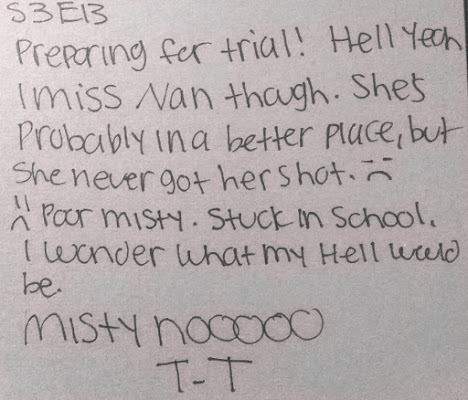 S3E13
Preparing for trial! Hell Yeah
I miss Nan though. She's
Probably in a better place, but
She never got her shot. :(
:( Poor misty. Stuck in School.
I wonder what my Hell would
be.
Misty nooooo
T-T